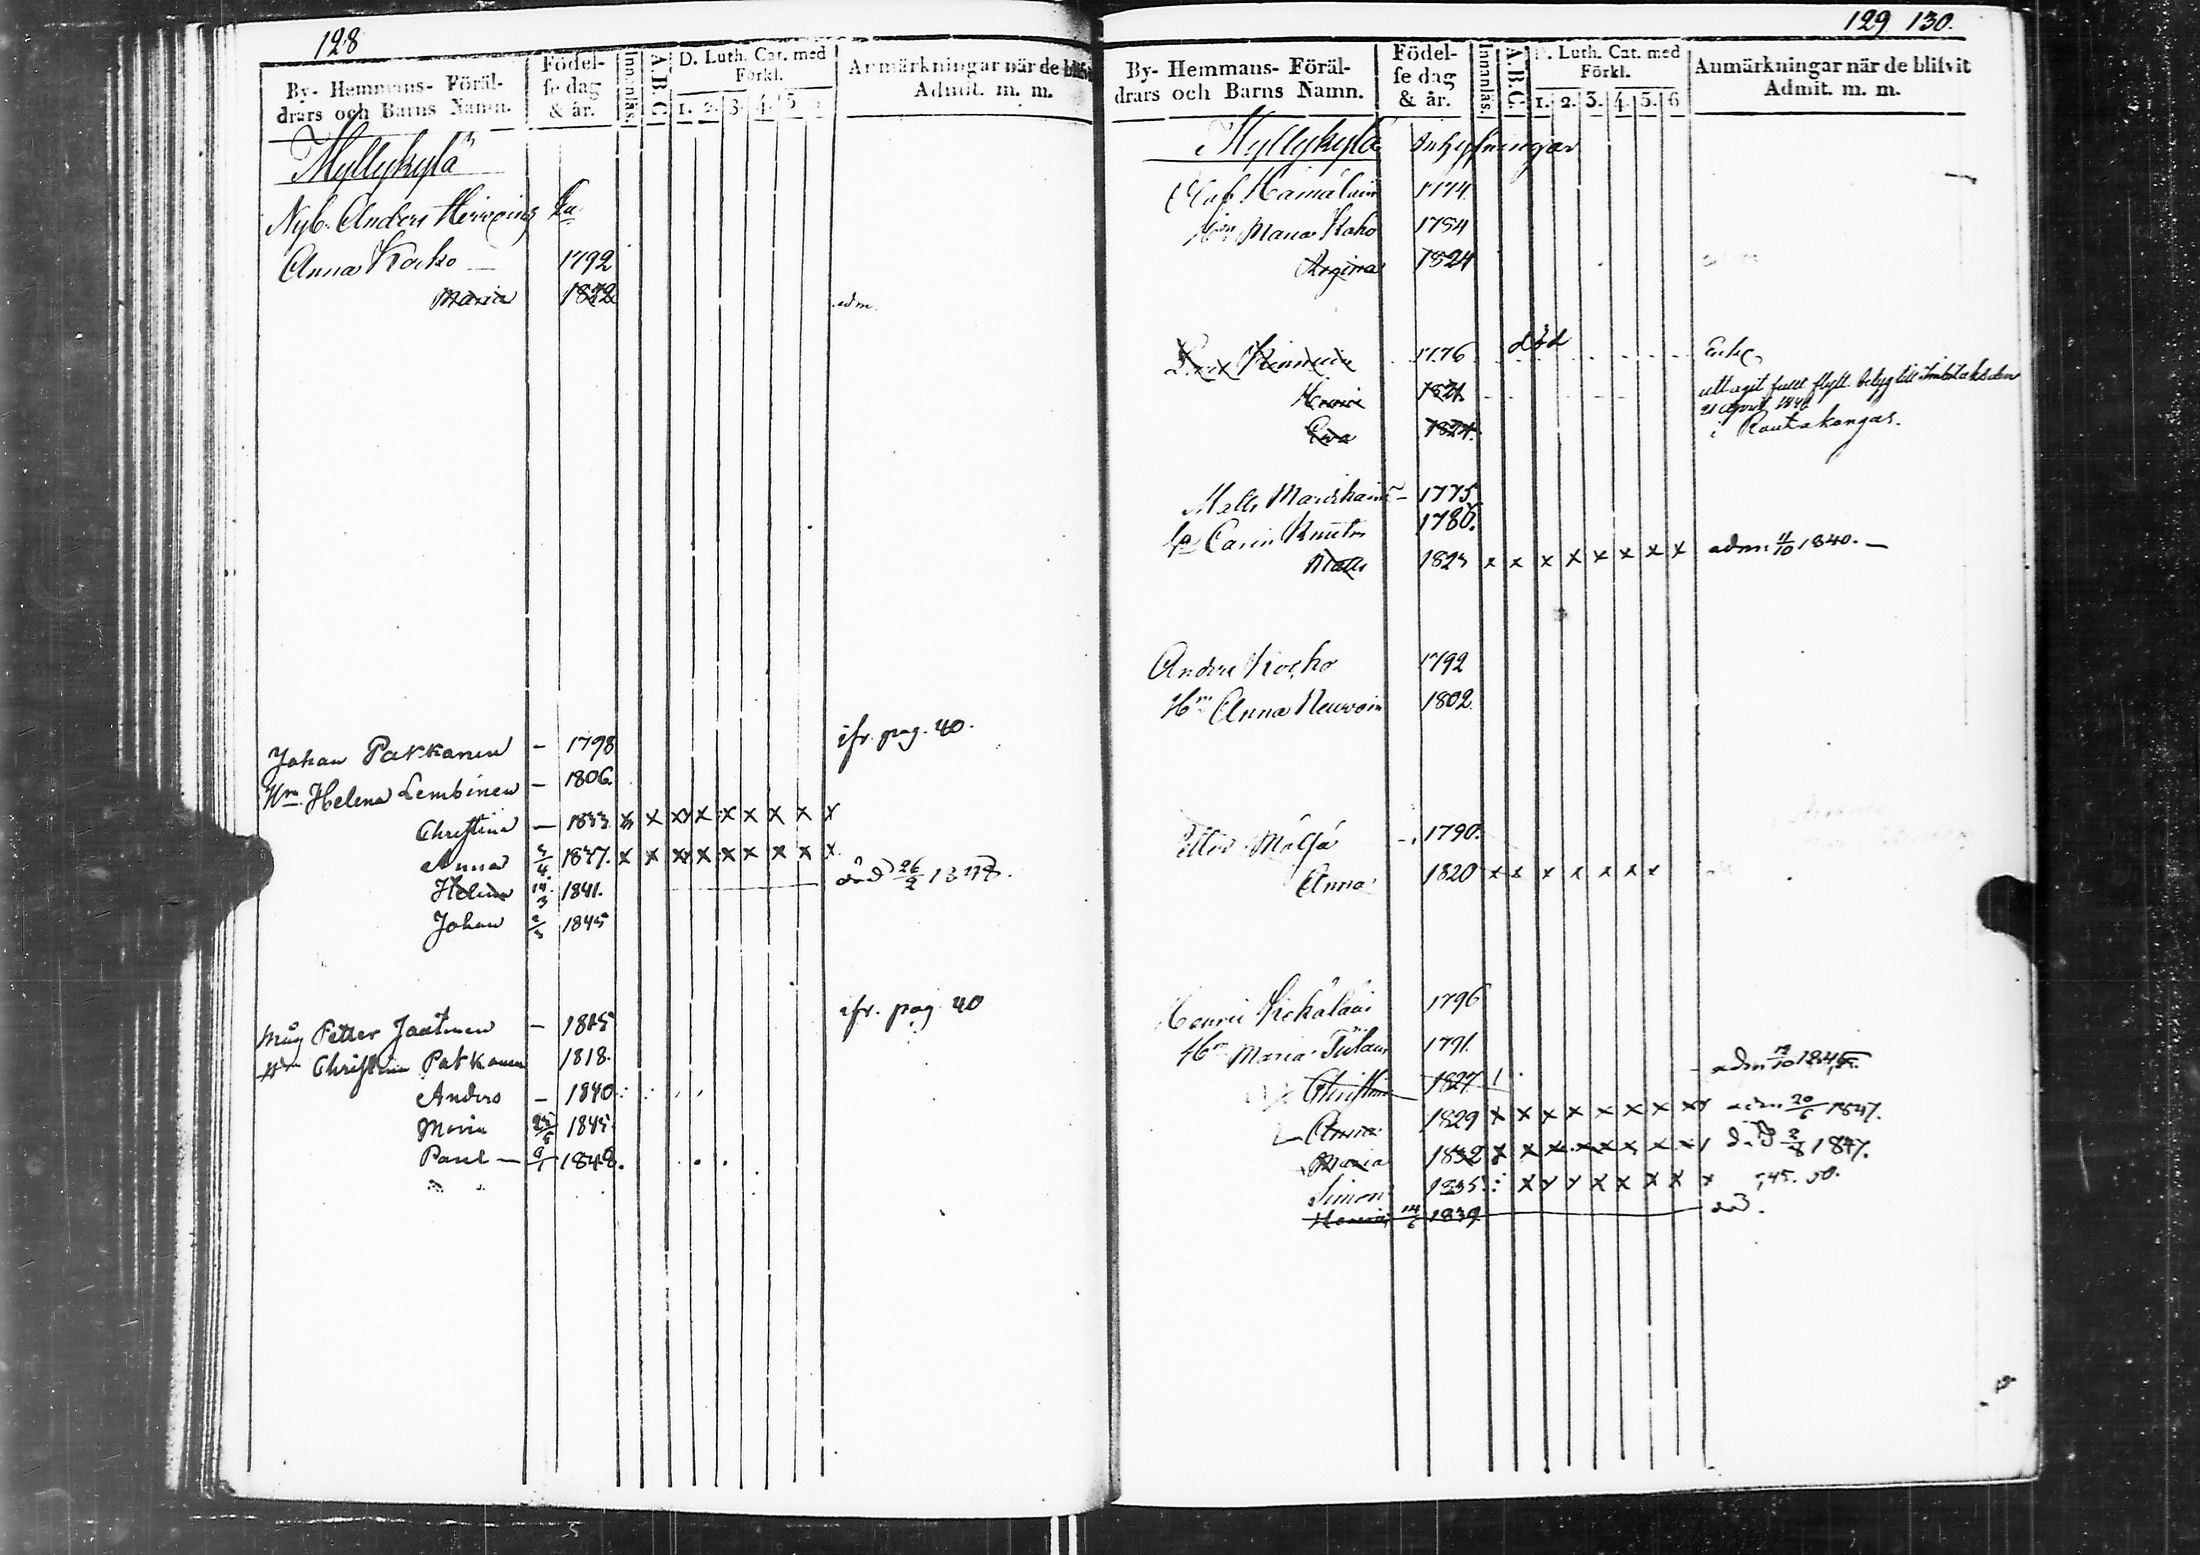 128
By- Hemmans- Föräl-
drars och Barns Namn.
Födel-
se dag
& år.
Innanläs.
A.B.C.
D. Luth. Cat. med
Förkl.
1. 2. 3. 4. 5
Anmärkningar när de blifvit
Admit. m. m.
Myllykylä
Nyb. Anders
Anna Kocko — 1792
Maria 1822 adm.
Johan Pakkanen — 1798 ifr. pag. 40.
Hm Helena Lembinen — 1806
Christina — 1833 x x x x x x x x x
Anna 1837. x x x x x x x x x
Helena 14/3 1841. död 26/2
Johan 1845
Petter Jaatinen — 1815 ifr. pag 40
Hm Christina Pakkanen 1818.
Anders — 1840
Maria 1845.
Paul — 9/1 1848.
129 130.
By- Hemmans- Föräl-
drars och Barns Namn.
Födel-
se dag
& år.
Innanläs.
A.B.C.
D. Luth. Cat. med
Förkl.
1. 2. 3. 4. 5. 6
Anmärkningar när de blifvit
Admit. m. m.
Myllykylä Inhysningar
Olof Hämäläin 1774.
Hm Maria Koko 1784
Regina 1824
1776 död Enk.
Henric 1821. uttagit flytt betyg till
Ewa 1824. 21 April
i Rautakangas.
Matts 1775
Carin 1786.
Matts 1823 x x x x x x x x adm. 11/10 1840. —
Anders Kocko 1792
Hm Anna Neuvoin 1802
Petter Mölsä — 1790.
Anna 1820 x x x x x x x
Henric Kekäläin 1796
Hm Maria 1791.
Christina 1827 adm
Anna 1829 x x x x x x x x adm 20/6 1847.
Maria 1832 x x x x x x x x
Simon 1835 x x x x x x x
Henric 14/6 1839 död.